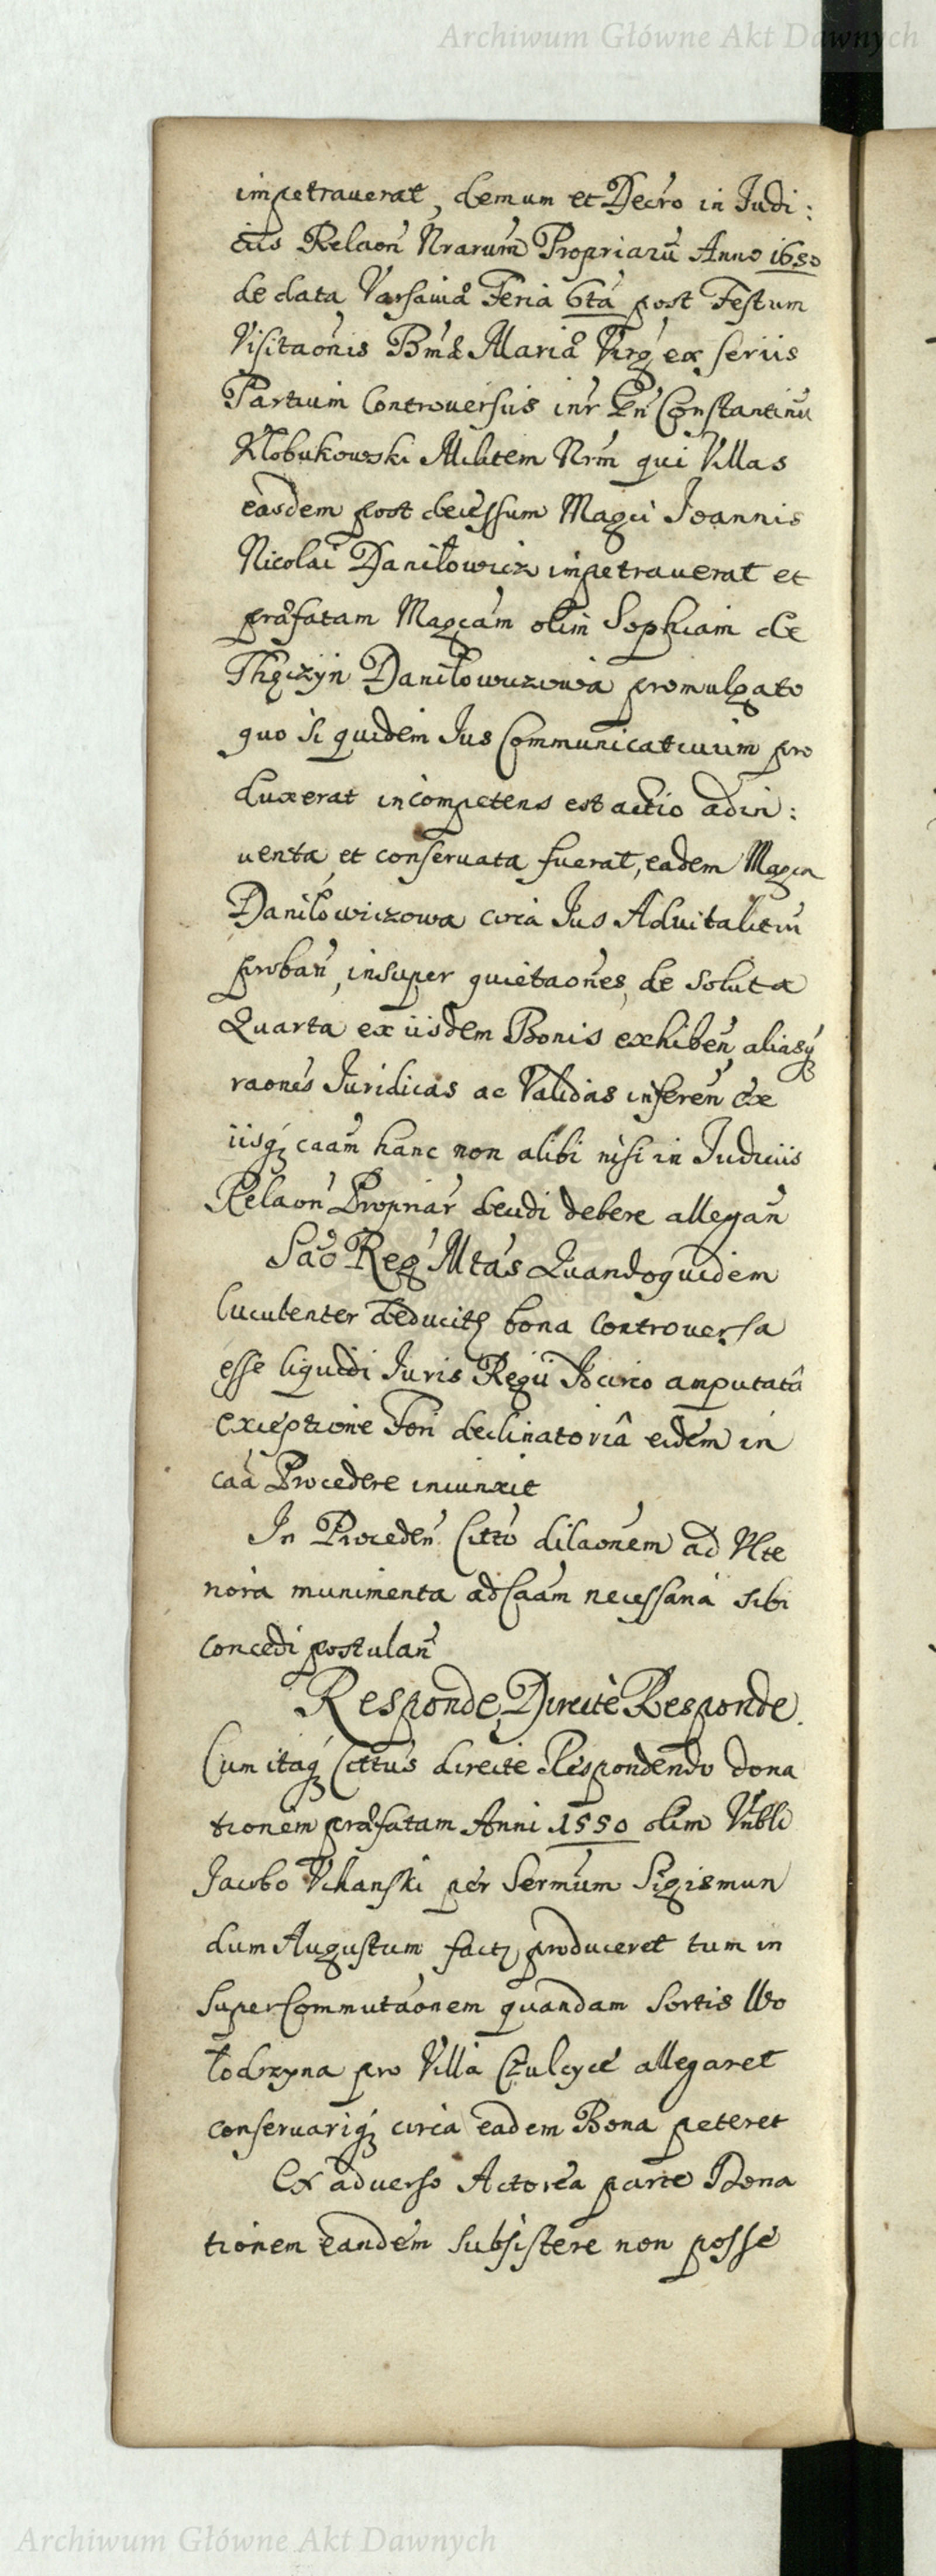 Archiwum Główne Akt Dawnych
impetrauerat, demum et Decro in Judi:
ciis Relaon Nrarum Propriaru Anno 1650
de data Varsauiæ Feria 6ta post Festum
Visitaonis Bmæ Mariæ Virg ex seriis
Partium Controuersiis inr Gn Constantinu
Kłobukowski Militem Nrm qui Villas
easdem post decessum Magci Joannis
Nicolai Daniłowicz impetrauerat et
præfatam Magcam olim Sophiam de
Thęczyn Daniłowiczowa promulgato
quo si quidem Jus Communicatiuum pro
duxerat incompetens est actio adin:
uenta et conseruata fuerat, eadem Magca
Daniłowiczowa circa Jus Aduitalitiu
proban, insuper quietaones de soluta
Quarta ex iisdem Bonis exhiben aliasq
raones Juridicas ac Validas inferen Ex
iisq caam hanc non alibi nisi in Judiciis
Relaon Propriar deudi debere allegan
Sac Reg Mtas Quandoquidem
luculenter deducit bona controuersa
esse liquidi Juris Regii Idcirco amputatâ
exceptione Fori declinatoriâ eidem in
caa Procedere iniunxit
In Proceden Cittus dilaonem ad Vlte
riora munimenta ad Caam necessaria sibi
concedi postulan
Responde, Directè Responde.
Cum itaq Cittus directe Respondendo dona
tionem præfatam Anni 1550 olim Vrbli
Jacobo Vchanski per Sermum Sigismun
dum Augustum fact produceret tum in
super Commutaonem quandam Sortis Wo
łodrzyna pro Villa Czulcycé allegaret
conseruariq circa eadem Bona peteret
Ex aduerso Actorea parte Dona
tionem eandem subsistere non posse
Archiwum Główne Akt Dawnych